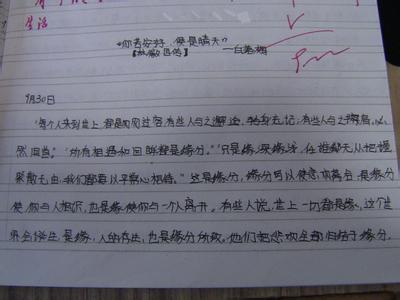 生活
"你若安好,便是晴天"
——白落梅
9月30日
"每个人来到世上,都是匆匆过客,有些人与之邂逅,转身忘记;有些人与之擦肩,必
然回首。""所有相遇和回眸都是缘分。""只是缘深缘浅,任谁都无从把握
聚散无由,我们都要以平常心相待。"这是缘分,缘分可以使悲欢离合,是缘分
使你与人相识,也是缘使你与一个人离开。有些人说,世上一切都是缘,这个世
界会诞生是缘,人的存在,也是缘分所致。他们把悲欢全部归结于缘分,